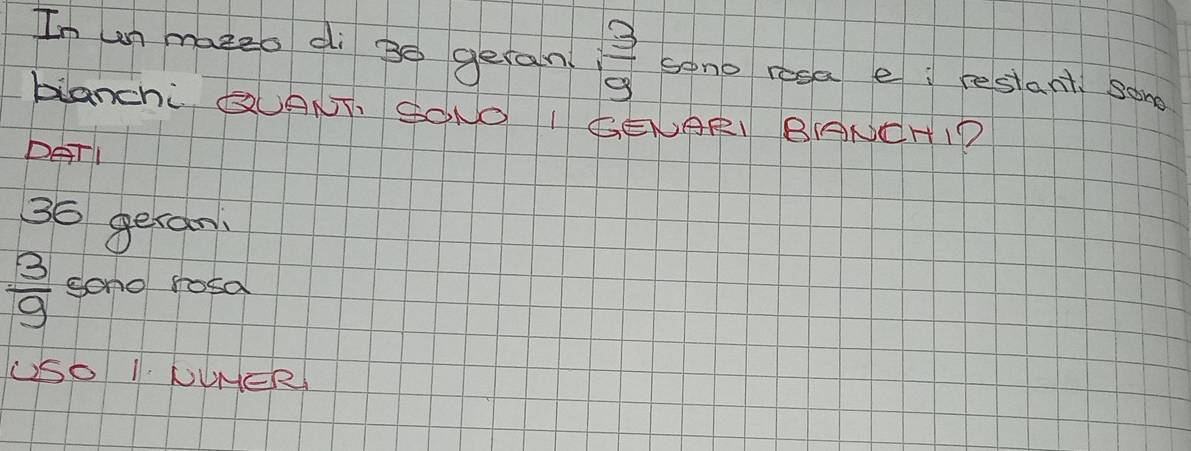 In un mazzo di 36 gerani 3/9 sono rosa e i restanti sono
bianchi QUANTI SONO I GENARI BIANCHI?
DATI
36 gerani
3/9 sono rosa
USO I NUMERI